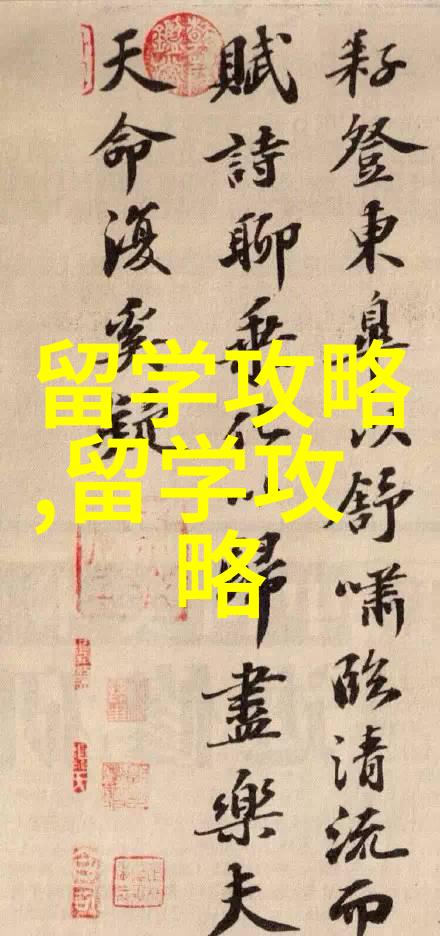 耔登東皋以舒嘯臨清流而
賦詩聊乘化以歸盡樂夫
天命復奚疑
留学攻略
,留学攻
略